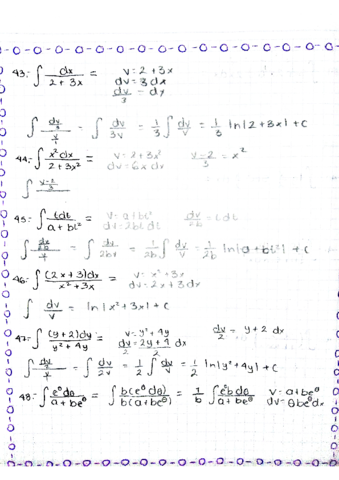 43.- ∫ dx / 2 + 3x = v = 2 + 3x
dv = 3 dx
dv/3 = dx
∫ dv/3 / v = ∫ dv / 3v = 1/3 ∫ dv / v = 1/3 ln|2 + 3x| + C
44.- ∫ x² dx / 2 + 3x² = v = 2 + 3x² v-2 / 3 = x²
dv = 6x dx
∫ v-2/3
45.- ∫ tdt / a + bt² = v = a + bt² dv/2b = tdt
dv = 2bt dt
∫ dv/2b / v = ∫ dv / 2bv = 1/2b ∫ dv / v = 1/2b ln|a + bt²| + C
46.- ∫ (2x + 3)dx / x² + 3x = v = x² + 3x
dv = 2x + 3 dx
∫ dv / v = ln|x² + 3x| + C
47.- ∫ (y + 2)dy / y² + 4y = v = y² + 4y dv/2 = y + 2 dx
dv/2 = 2y + 4 / 2 dx
∫ dv/2 / v = ∫ dv / 2v = 1/2 ∫ dv / v = 1/2 ln|y² + 4y| + C
48.- ∫ e^θ dθ / a + be^θ = ∫ b(e^θ dθ) / b(a + be^θ) = 1/b ∫ e^θ b dθ / a + be^θ v = a + be^θ
dv = θbe^θ dx